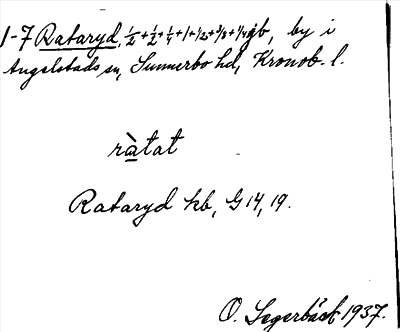 1-7 Rataryd, 1/2+1/2+1/4+1+1/2+3/8+1/4 gb, by i
Angelstads sn, Sunnerbo hd, Kronob. l.
ràtat
Rataryd hb, G 14, 19.
O. Segerbäck 1937.